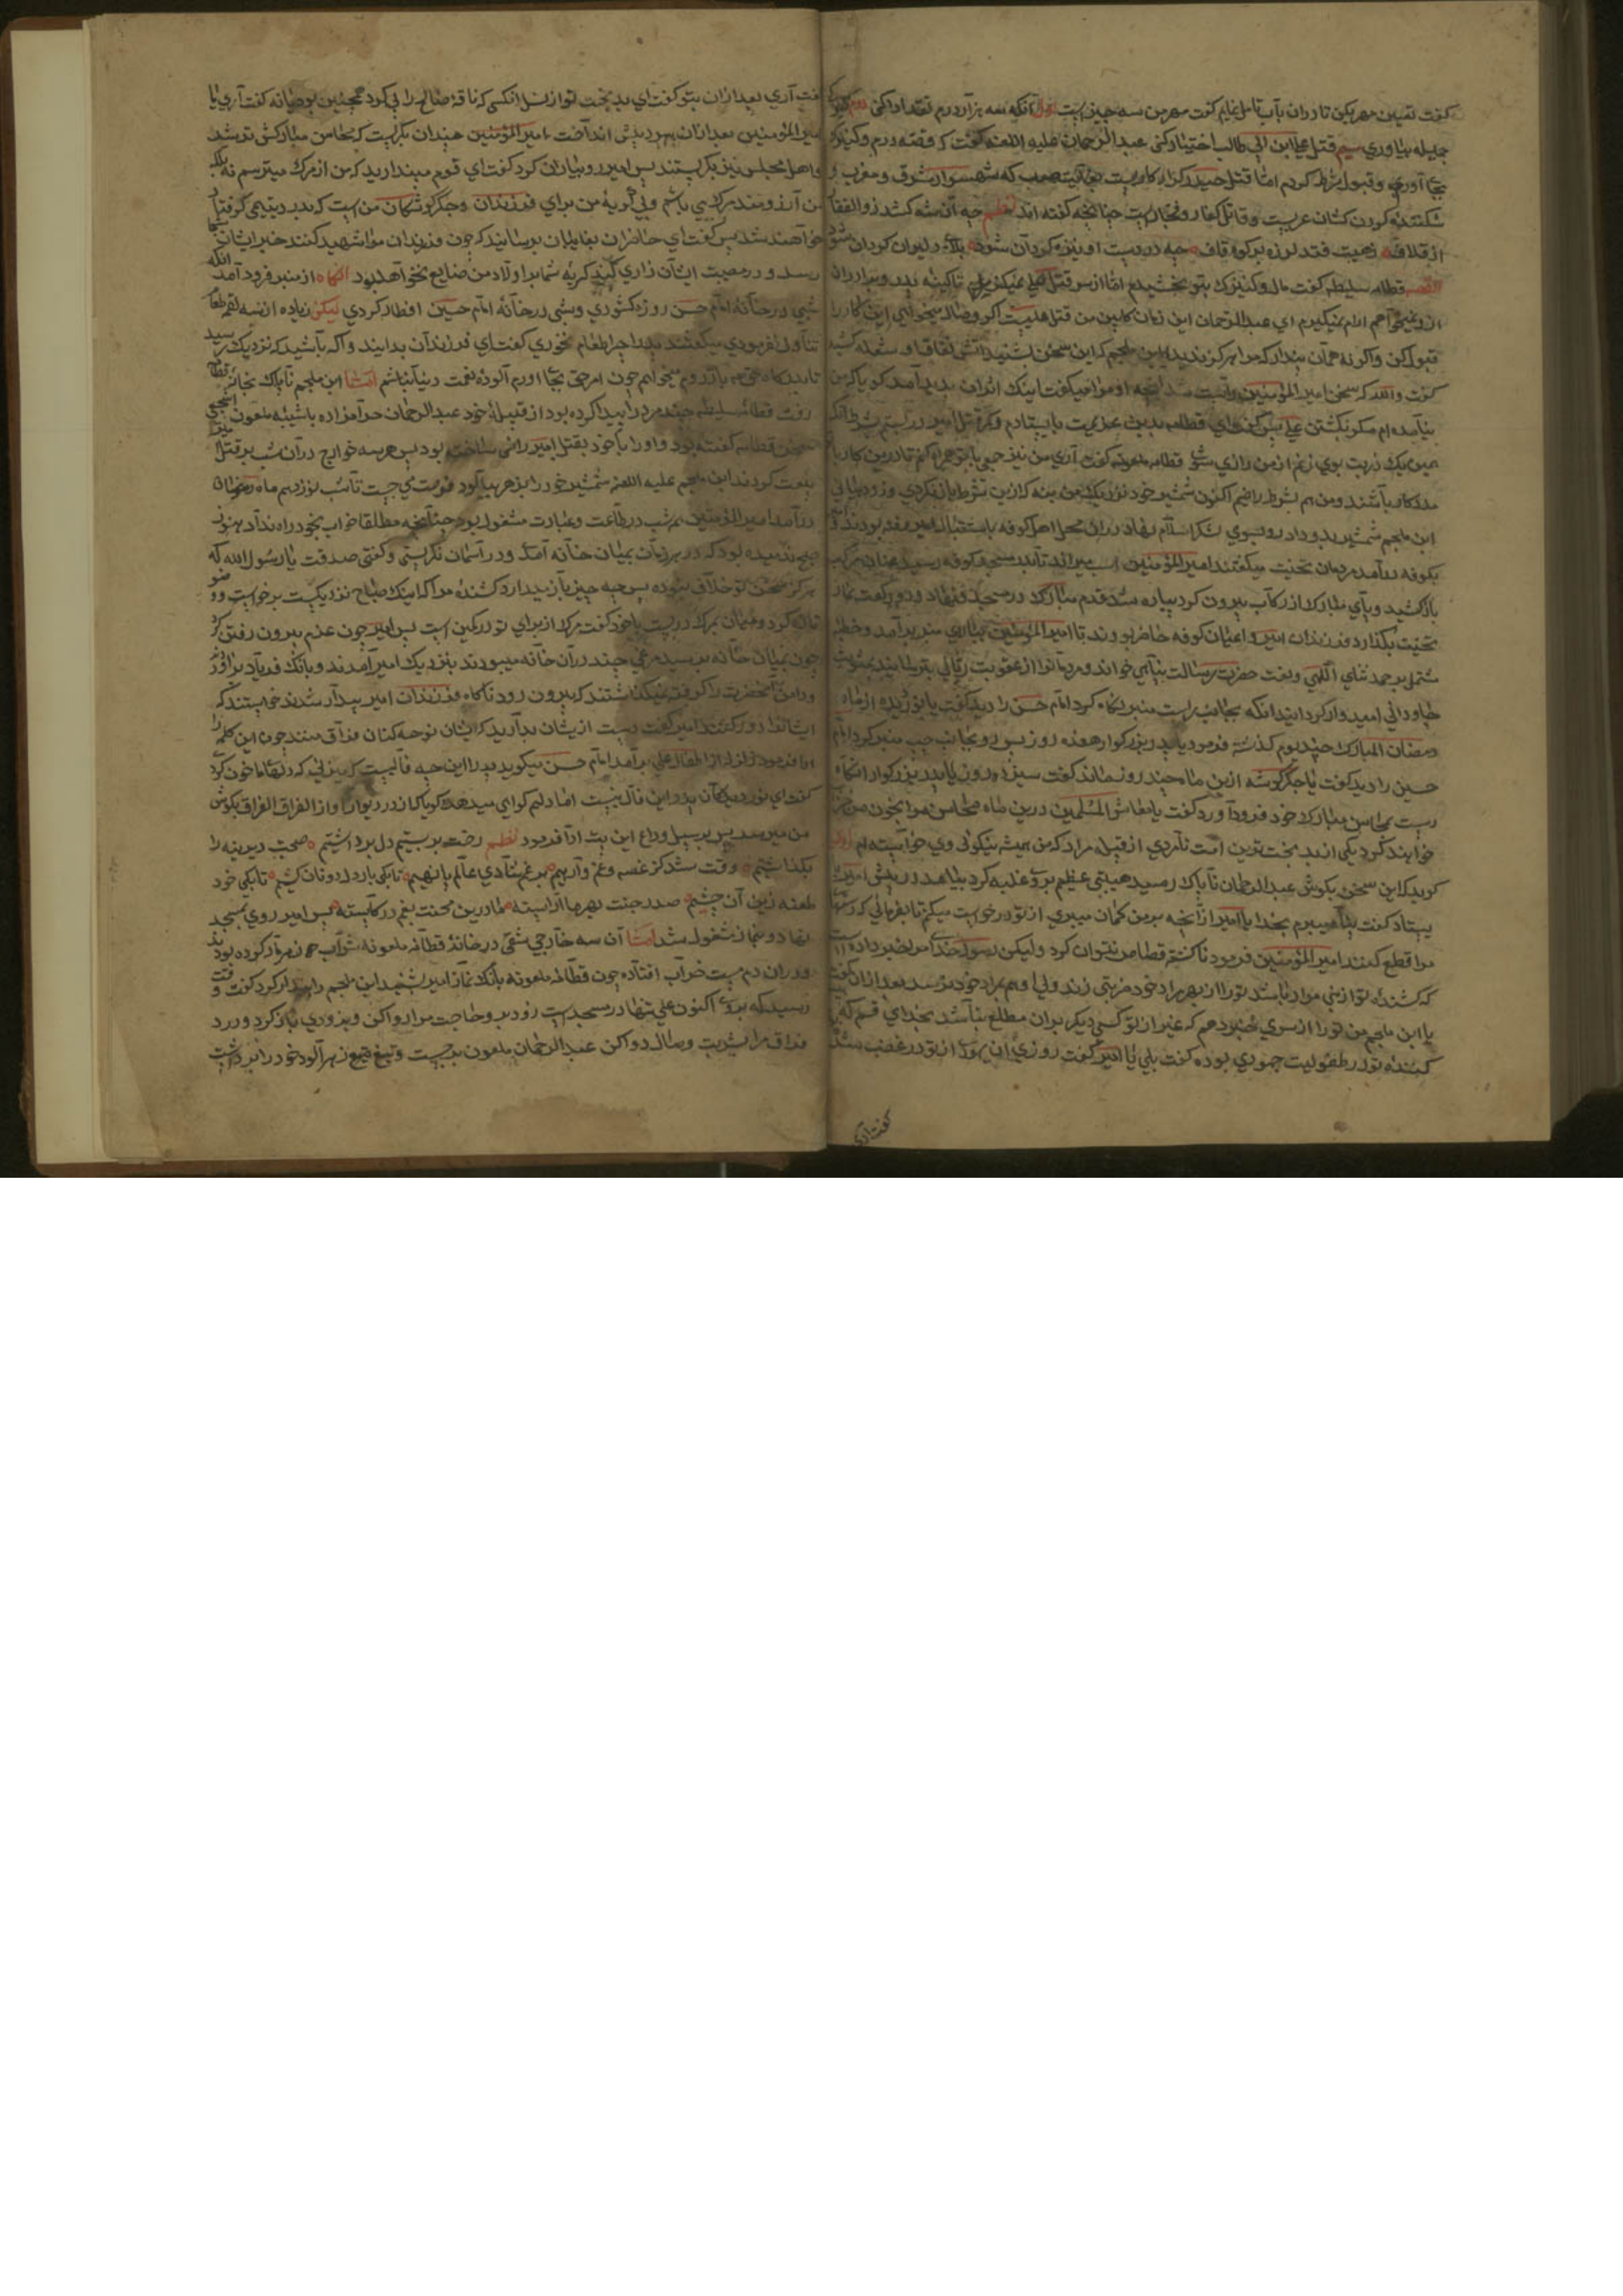 کفت تعیین مهر بکن تا دران باب تامل نمایم کفت مهر من سه چیز است اول آنکه سه هزار درم نقد ادا کنی دوم کنیزک
جمیله بیاوری سیم قتل علی ابن ابی طالب اختیار کنی عبد الرحمان علیه اللعنه کفت که فضه درم و کنیزک
بجا آورم و قبول شرط کردم اما قتل حیدر کرار کاریست بغایت صعب که شهسوار شرق و مغرب و
شکننده کردن کشان عربست و قاتل کفار و فجارست چنانچه کفته اند نظم چه آن شه کشد ذو الفقار
از غلاف فتد لرزه بر کوه قاف چه در دست او نیزه کردان شود بلای دلیران کردان شود
القصه قطامه سلیطه کفت مال و کنیزک بتو بخشیدم اما از سر قتل علی نمیکذرم تا کینه پدر و برادران
ازو نمیخواهم ارام نمیکیرم ای عبد الرحمان این زمان کابین من قتل علیست اکر وصال میخواهی این کار را
قبول کن واکرنه همان پندار که مرا هرکز ندیدی ابن ملجم که این سخن بشنید اتش نفاق او شعله کشید
کفت والله که سخن امیر المؤمنین راست شد انچه او مرا میکفت اینک اثر ان بدید آمد کویا که من
نیامده ام مکر بکشتن علی پس کفت ای قطامه بدین عزیمت بایستادم و فکر قتل امیر در بستم بشرط آنکه
همین یک ضربت بوی زنم از من راضی شوی قطامه ملعونه کفت آری من نیز جمعی با تو همراه کنم تا درین کار با
مددکار باشند و من هم بشرط راضیم اکنون شمشیر خود نزدیک من بنه که ازین شرط باز نکردی و زود بیایی
ابن ملجم شمشیر بدو داد رو بسوی لشکر اسلام نهاد
بکوفه در آمد مردمان تحنیت میکفتند امیر المؤمنین اسب میراند تا بدر مسجد کوفه رسید عنان مرکب
باز کشید و پای مبارک از رکاب بیرون کرد پیاده شد قدم مبارک در مسجد نهاد و دو رکعت نماز
تحیت بکذارد فرزندان امیر و اعیان کوفه حاضر بودند تا امیر المؤمنین بر منبر بر آمد و خطبه
مشتمل بر حمد ثنای الهی و نعت حضرت رسالت پناهی خواند و مردمانرا از عقوبت ربانی بترسانید بمثوبت
جاودانی امیدوار کردانید انکه بجانب راست منبر نکاه کرد امام حسن را دید کفت یا نور دیده از ماه
رمضان المبارک چند یوم کذشته فرمود یا پدر بزرکوار هفده روز پس رو بجانب چپ منبر کرد امام
حسین را دید کفت یا جکرکوشه ازین ماه چند روز مانده کفت سیزده روز یا پدر بزرکوار انکاه
دست بمحاسن مبارک خود فرود آورد کفت یا معاشر المسلمین درین ماه محاسن مرا بخون من خضاب
خواهند کرد یکی از بد بخت ترین امت نامردی از قبیله مراد که من همیشه نیکوئی وی خواسته ام راوی
کوید که این سخن بکوش عبد الرحمان ناپاک رسید هیبتی عظیم بر وی غلبه کرد بیامد در پیش امیر
بیستاد کفت پناه میبرم بخدا یا امیر از آنچه بر من کمان میبری از تو درخواست میکنم تا بفرمائی که دستها
مرا قطع کنند امیر المؤمنین فرمود ناکشته قصاص نتوان کرد ولیکن رسول خدا مرا خبر داده است
که کشنده تو از بنی مراد باشد تورا از بهر مراد خود ضربتی زند ولی او هم بمراد خود نرسد بعد ازان کفت
یا ابن ملجم من تورا از سری خبر دهم که غیر از تو کسی دیکر بران مطلع نباشد بخدای قسم که
کننده تو در طفولیت جهودی بوده کفت بلی یا امیر کفت روزی آن جهود از تو در غضب شد
کفت آری
کفت آری بعد ازان بتو کفت ای بد بخت تو از نسل انکسی که ناقه صالح را پی کرد همچنین بود یا نه کفت آری یا
امیر المؤمنین بعد ازان سر در پیش انداخت امیر المؤمنین چندان بکریست که محاسن مبارکش تر شد
و اهل مجلس نیز بکریستند پس امیر رو بیاران کرد کفت ای قوم مپندارید که من از مرک میترسم نه بلکه
من آرزومند مرک می باشم ولی کریه من برای فرزندان و جکر کوشکان من است که بدرد یتیمی کرفتار
خواهند شد پس کفت ای حاضران بغایبان برسانید که چون فرزندان مرا شهید کنند خبر ایشان بشما
رسد و در مصیبت ایشان زاری کنید کریه شما بر اولاد من ضایع نخواهد بود انکاه از منبر فرود آمد
شبی در خانه امام حسن روزه کشودی و شبی در خانه امام حسین افطار کردی لیکن زیاده از سه لقمه قطعا
تناول نفرمودی میکفتند پدر چرا طعام نخوری کفت ای فرزندان بدانید و آکه باشید که نزدیک رسید
اما ابن ملجم ناپاک بخانه قطامه
رفت قطامه سلیطه چند مرد را پیدا کرده بود از قبیله خود عبد الرحمان حرامزاده با شبیه ملعون اشجعی
سخن قطامه کفته بود و اورا با خود بقتل امیر راضی ساخت بود پس هر سه خوارج در آن شب بر قتل
بیعت کردند ابن ملجم علیه اللعنه شمشیر خود را بزهر بیالود فرصت می جست تا شب نوزدهم ماه رمضان
در آمد امیر المؤمنین هر شب در طاعت و عبادت مشغول بود چنانچه مطلقا خواب بخود راه نداد هنوز
صبح ندمیده بود که در هر زمان بمیان خانه آمد و در آسمان نکریستی و کفتی صدقت یا رسول الله که
هرکز سخن تو خلاف نبوده پس چه چیز باز میدارد کشنده مرا که اینک صباح نزدیکست برخواست وضو
تازه کرد و میان بمرک در بست با خود کفت مرک از برای تو در کمین است پس امیر چون عزم بیرون رفتن کرد
چون بمیان خانه برسید مرغی چند در آن خانه میبودند بنزدیک امیر آمدند و بانک فریاد براوردند
و دامن آنحضرت را کرفته نمیکذاشتند که بیرون رود ناکاه فرزندان امیر بیدار شدند خواستند که
ایشانرا دور کنند امیر کفت دست از یشان بدارید که ایشان نوحه کنان فراق منند چون این کلمه را
ادا فرمود امام حسن میکوید پدر را این چه فالیست که میزنی که دلهای ما خون کرد
کفت ای نور دیدکان پدر این فال نیست اما دلم کواهی میدهد کویا که از در و دیوار آواز الفراق الفراق بکوش
من میرسد پس بر سبیل وداع این بیت ادا فرمود نظم رخت بر بستیم دل برداشتیم صحبت دیرینه را
بکذاشتیم وقت شد کز غصه و غم وا رهیم بر غم شادی عالم پا نهیم تا بکی بار دل دونان کشیم تا بکی خود
طعنه زین آن چشیم صدر جنت بهر ما آراسته ما درین محنت بغم در کاسته پس امیر روی بمسجد
نهاد و بنماز مشغول شد اما آن سه خارجی شقی در خانه قطامه ملعونه شراب زهرمار کرده بودند
و دران دم مست خراب افتاده چون قطامه ملعونه بانک نماز امیر بشنید ابن ملجم را بیدار کرد کفت وقت
رسید که بروی اکنون علی تنها در مسجد است زود برو حاجت مرا روا کن و بزودی باز کرد و درد
فراق مرا بشربت وصال دوا کن عبد الرحمان ملعون برجست و تیغ زهر آلود خود را برداشت